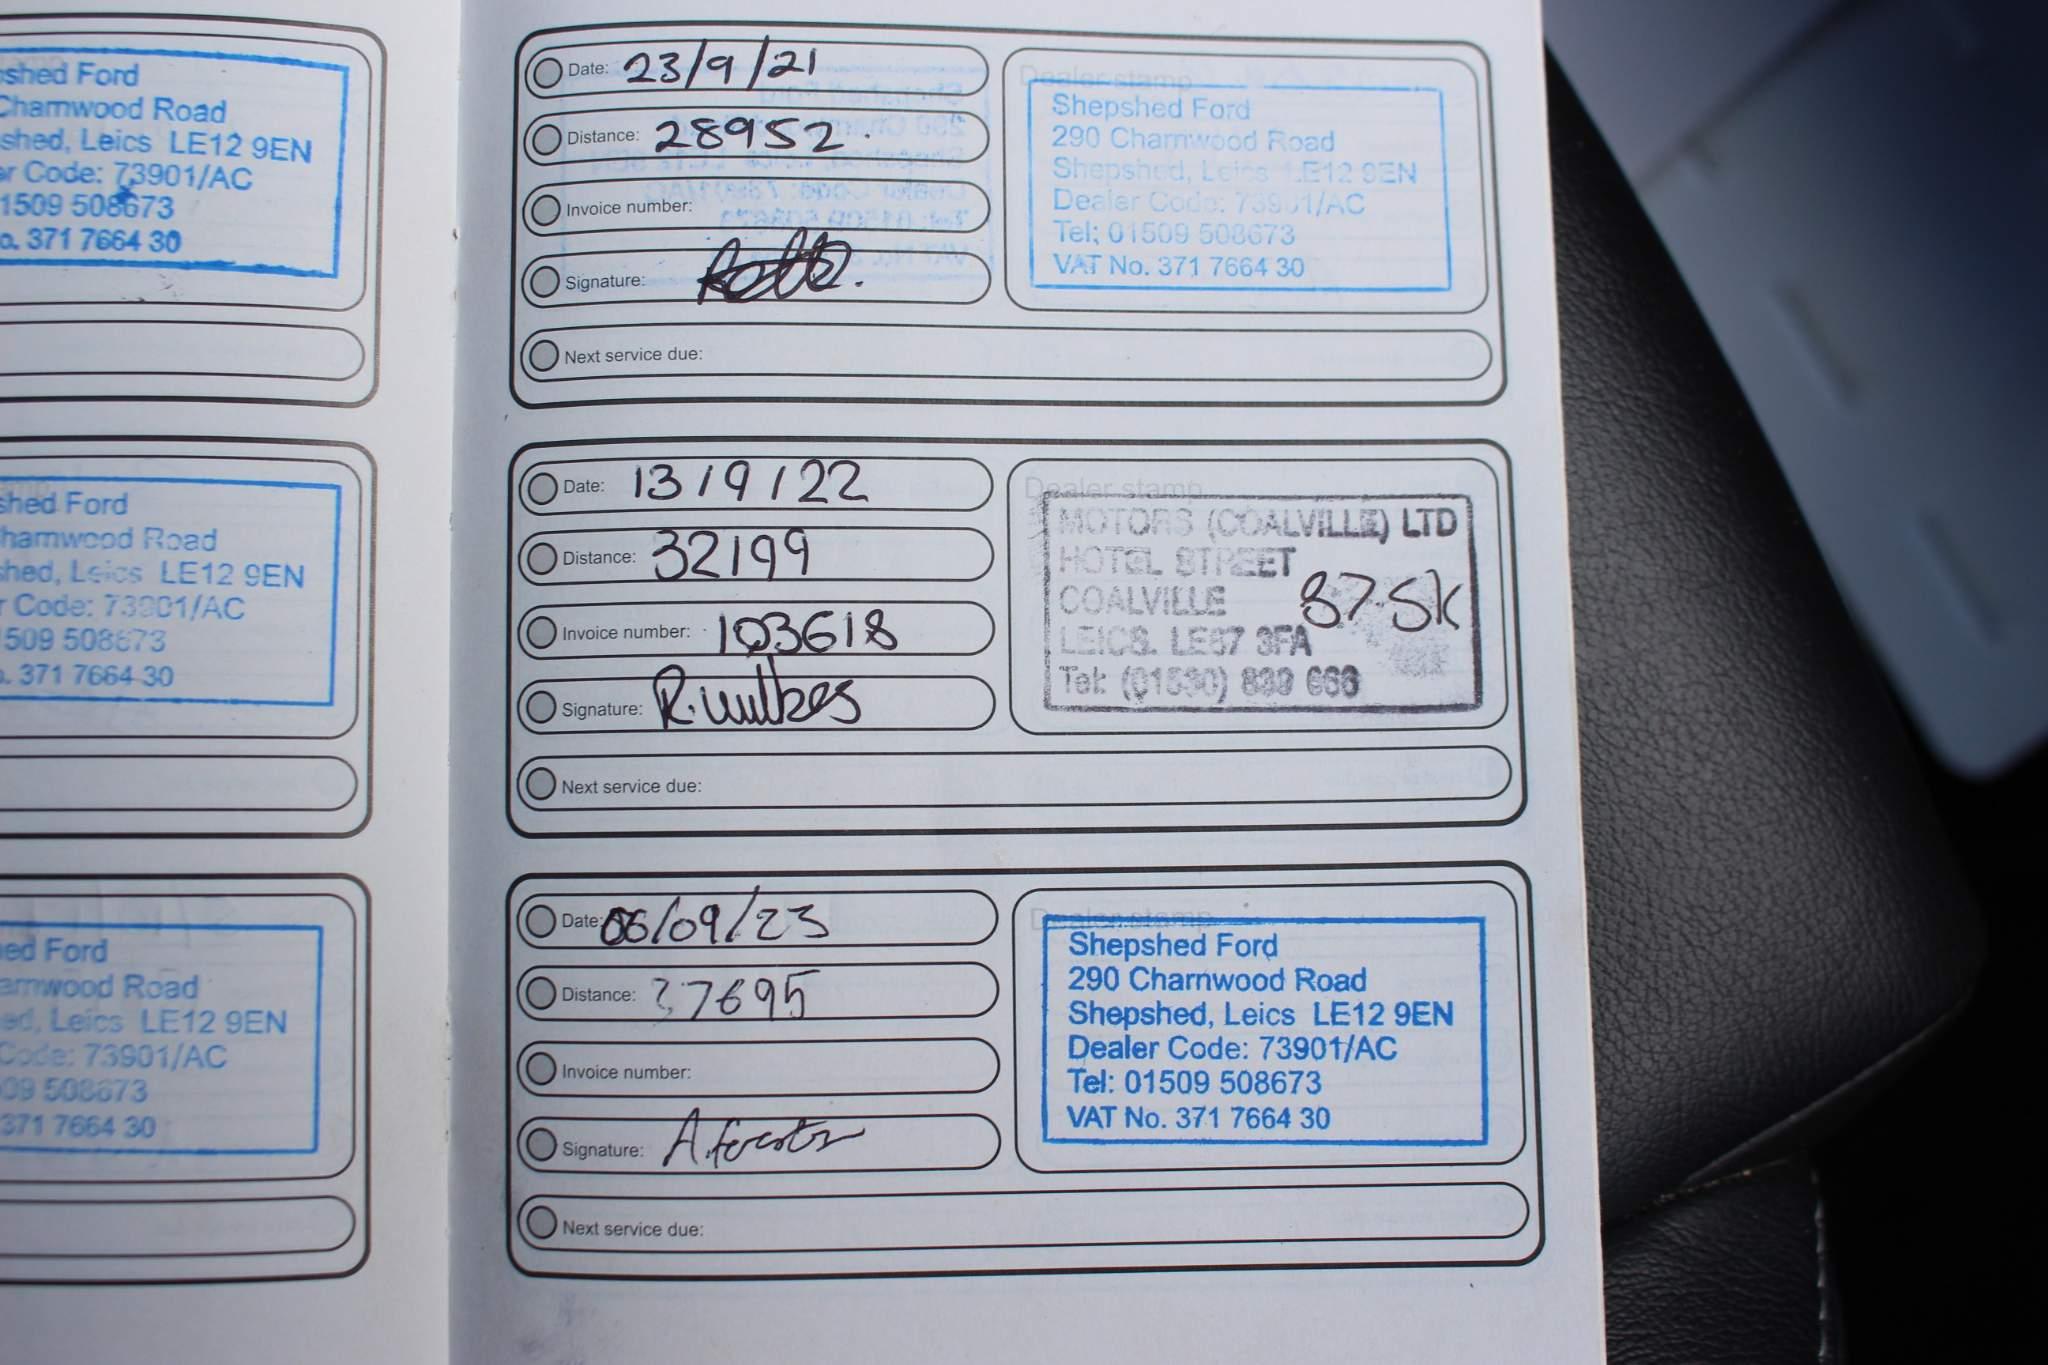 shed Ford
Charnwood Road
shed, Leics LE12 9EN
r Code: 73901/AC
1509 508673
o. 371 7664 30
shed Ford
harnwood Road
hed, Leics LE12 9EN
r Code: 73901/AC
509 508673
. 371 7664 30
ed Ford
arnwood Road
ed, Leics LE12 9EN
Code: 73901/AC
09 508673
371 7664 30
Date: 23/9/21
Distance: 28952
Invoice number:
Signature:
Next service due:
Dealer stamp
Shepshed Ford
290 Charnwood Road
Shepshed, Leics LE12 9EN
Dealer Code: 73901/AC
Tel: 01509 508673
VAT No. 371 7664 30
Date: 13/9/22
Distance: 32199
Invoice number: 103618
Signature: R. Wilkes
Next service due:
Dealer stamp
MOTORS (COALVILLE) LTD
HOTEL STREET
COALVILLE
LEICS. LE67 3FA
Tel: (01530)
Date: 06/09/23
Distance: 37695
Invoice number:
Signature:
Next service due:
Dealer stamp
Shepshed Ford
290 Charnwood Road
Shepshed, Leics LE12 9EN
Dealer Code: 73901/AC
Tel: 01509 508673
VAT No. 371 7664 30